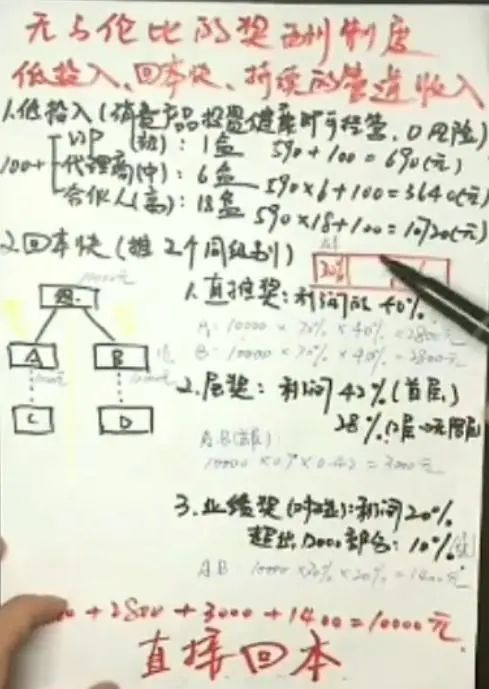 无与伦比的奖酬制度
低投入、回本快、持续的管道收入
1.低投入(消费产品投资健康即可经营,0风险)
100+
VIP (初): 1盒 590+100=690(元)
代理商(中): 6盒 590×6+100=3640(元)
合伙人(高): 18盒 590×18+100=10720(元)
2.回本快(推2个同级别)
30%
10000元
A
B
C
D
1.直推奖:利润的40%
A:10000×70%×40%=2800元
B:10000×70%×40%=2800元
2.层奖:利润42%(首层)
28%
A.B(首层):
10000×0.7×0.42=3000元
3.业绩奖 利润20%
10%
A.B:10000×70%×20%=1400元
+2800+3000+1400=10000元
直接回本